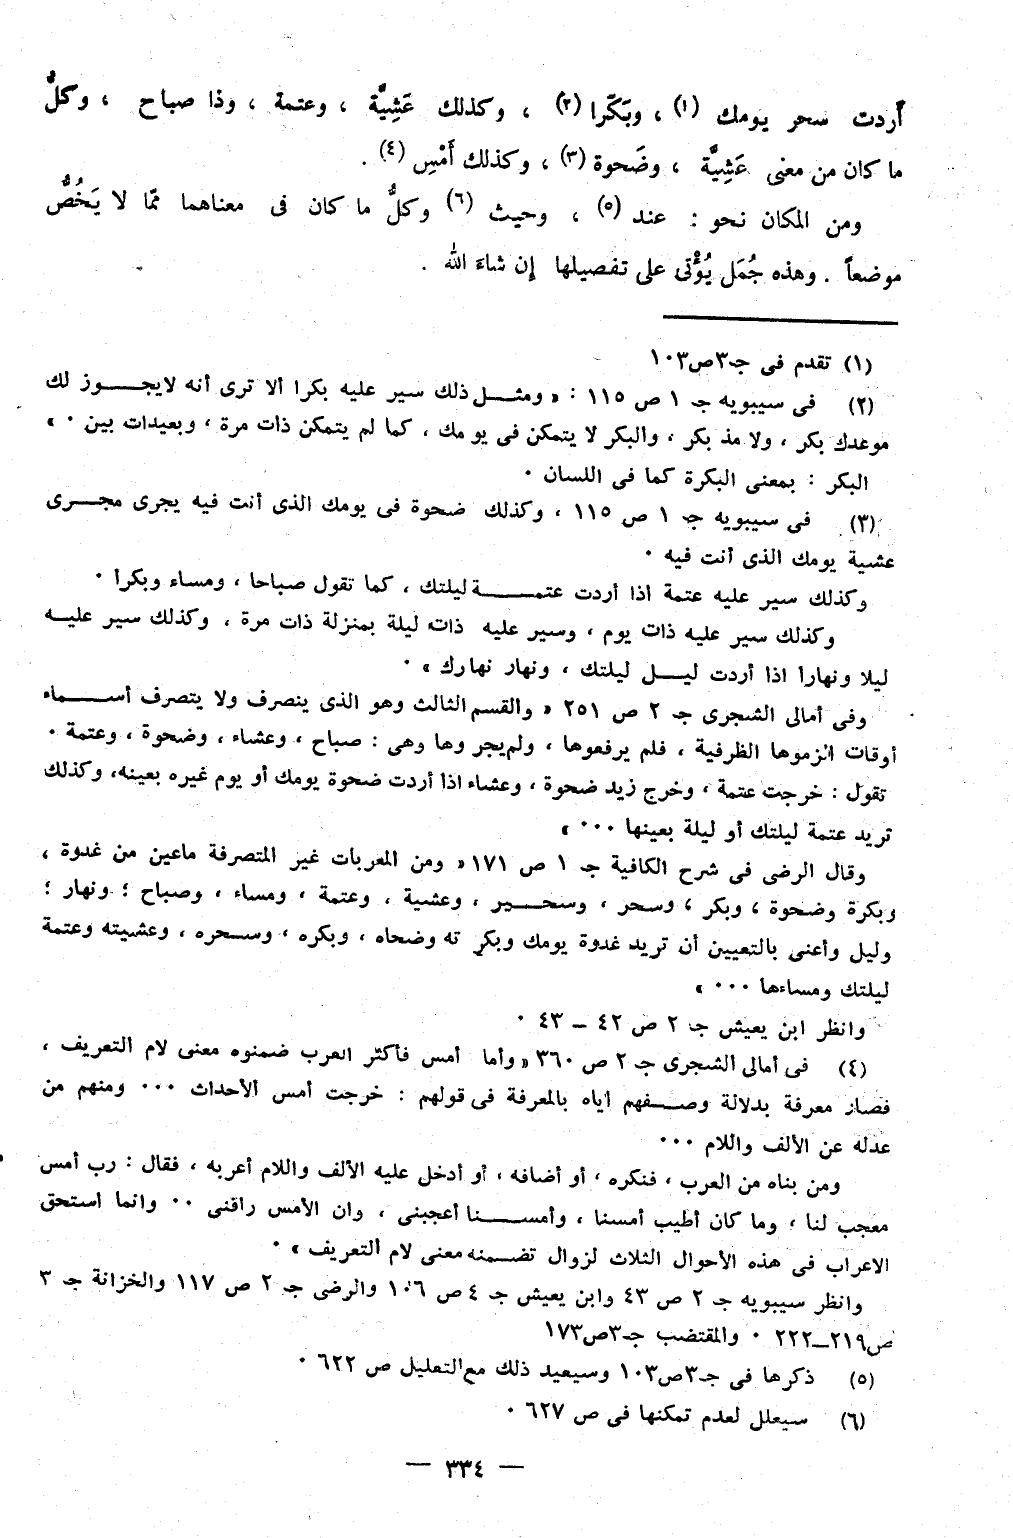 أردت سحر يومك (١) ، وبَكّرا (٢) ، وكذلك عَشِيَّة ، وعتمة ، وذا صباح ، وكلُّ
ما كان من معنى عَشِيَّة ، وضَحوة (٣) ، وكذلك أَمْسِ (٤) .
ومن المكان نحو : عند (٥) ، وحيث (٦) وكلُّ ما كان فى معناهما ممّا لا يَخُصُّ
موضعاً . وهذه جُمَل يُؤْتى على تفصيلها إن شاءَ الله .
(١) تقدم فى جـ٣ص١٠٣
(٢) فى سيبويه جـ ١ ص ١١٥ : « ومثـــل ذلك سير عليه بكرا ألا ترى أنه لايجــــوز لك
موعدك بكر ، ولا مذ بكر ، والبكر لا يتمكن فى يومك ، كما لم يتمكن ذات مرة ، وبعيدات بين ٠ »
البكر : بمعنى البكرة كما فى اللسان ٠
(٣) فى سيبويه جـ ١ ص ١١٥ ، وكذلك ضحوة فى يومك الذى أنت فيه يجرى مجـــرى
عشية يومك الذى أنت فيه ٠
وكذلك سير عليه عتمة اذا أردت عتمـــــة ليلتك ، كما تقول صباحا ، ومساء وبكرأ ٠
وكذلك سير عليه ذات يوم ، وسير عليه ذات ليلة بمنزلة ذات مرة ، وكذلك سير عليـــه
ليلا ونهارأ اذا أردت ليـــل ليلتك ، ونهار نهارك » ٠
وفى أمالى الشجرى جـ ٢ ص ٢٥١ « والقسم الثالث وهو الذى ينصرف ولا يتصرف أســـماء
أوقات الزموها الظرفية ، فلم يرفعوها ، ولم يجروها وهى : صباح ، وعشاء ، وضحوة ، وعتمة ٠
تقول : خرجت عتمة ، وخرج زيد ضحوة ، وعشاء اذا أردت ضحوة يومك أو يوم غيره بعينه، وكذلك
تريد عتمة ليلتك أو ليلة بعينها ٠٠٠ »
وقال الرضى فى شرح الكافية جـ ١ ص ١٧١ « ومن المعربات غير المتصرفة ماعين من غدوة ،
وبكرة وضحوة ، وبكر ، وسحر ، وسحـــير ، وعشية ، وعتمة ، ومساء ، وصباح ؛ ونهار ؛
وليل وأعنى بالتعيين أن تريد غدوة يومك وبكرته وضحاه ، وبكره ، وســحره ، وعشيته وعتمة
ليلتك ومساءها ٠٠٠ »
وانظر ابن يعيش جـ ٢ ص ٤٢ ــ ٤٣ ٠
(٤) فى أمالى الشجرى جـ ٢ ص ٣٦٠ « وأما أمس فأكثر العرب ضمنوه معنى لام التعريف ،
فصار معرفة بدلالة وصـــفهم اياه بالمعرفة فى قولهم : خرجت أمس الأحداث ٠٠٠ ومنهم من
عدله عن الألف واللام ٠٠٠
ومن بناه من العرب ، فنكره ، أو أضافه ، أو أدخل عليه الألف واللام أعربه ، فقال : رب أمس
معجب لنا ، وما كان أطيب أمسنا ، وأمســـنا أعجبنى ، وان الأمس راقنى ٠٠ وانما استحق
الاعراب فى هذه الأحوال الثلاث لزوال تضــمنه معنى لام التعريف » ٠
وانظر سيبويه جـ ٢ ص ٤٣ وابن يعيش جـ ٤ ص ١٠٦ والرضى جـ ٢ ص ١١٧ والخزانة جـ ٣
ص٢١٩ــ٢٢٢ ٠ والمقتضب جـ٣ص١٧٣
(٥) ذكرها فى جـ٣ص١٠٣ وسيعيد ذلك مع التعليل ص ٦٢٢ ٠
(٦) سيعلل لعدم تمكنها فى ص ٦٢٧ ٠
— ٣٣٤ —